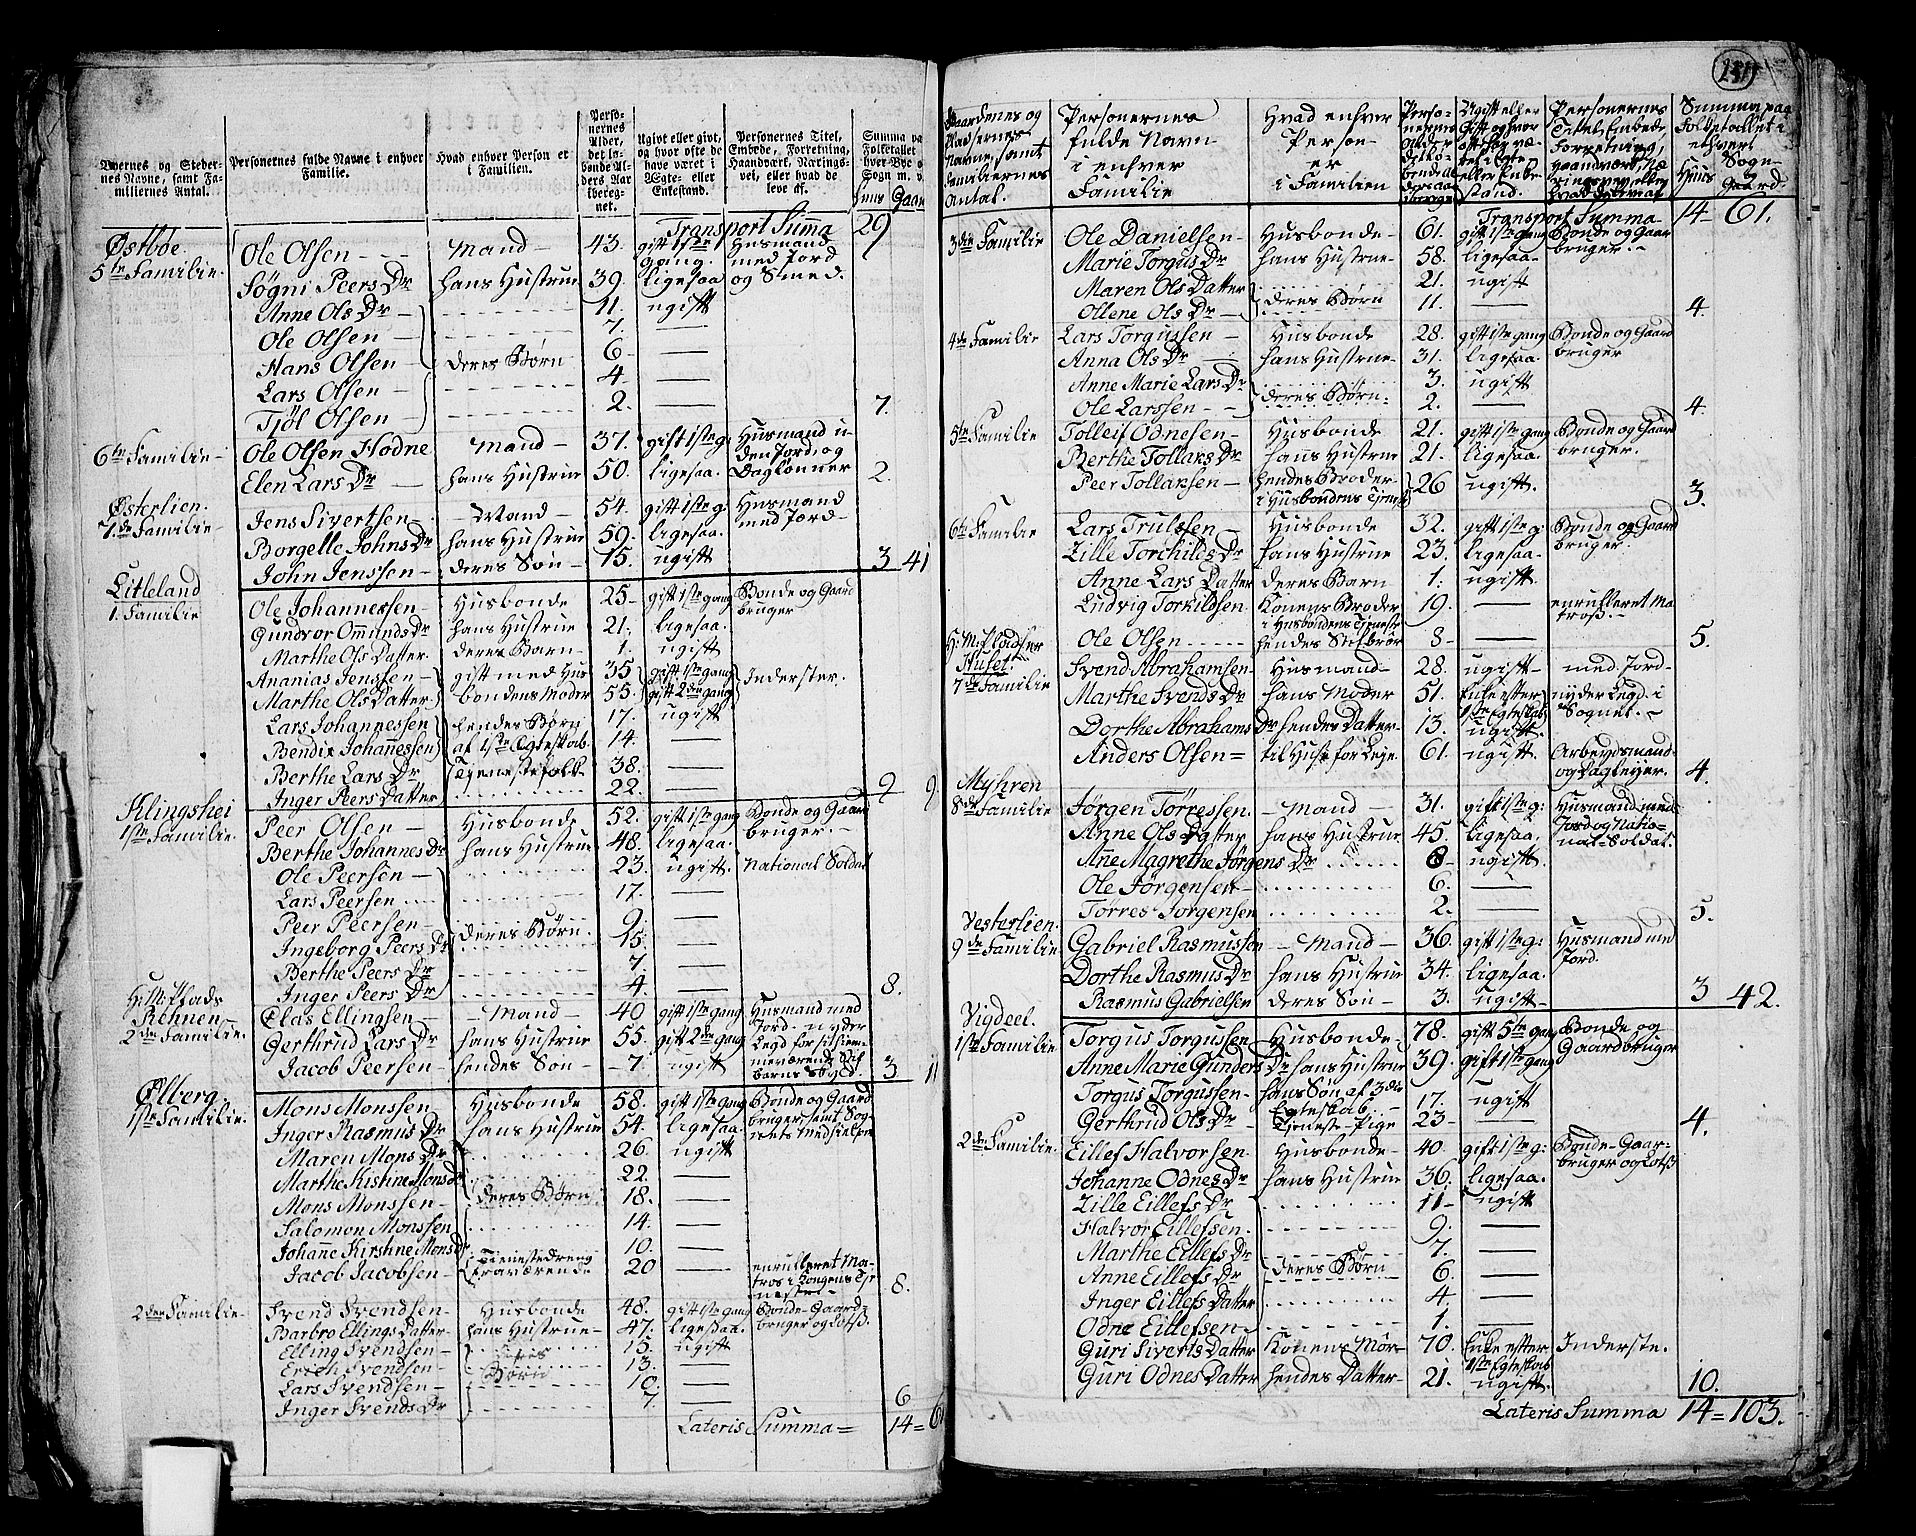 Byernes og Steder-
nes Navne, samt Fa-
miliernes Antal.
Personernes fulde Navne i enhver
Familie.
Hvad enhver Person er
i Familien.
Perso-
nernes
Alder,
det lø-
bende Al-
ders Aar
iberreg-
net.
Ugivt eller givt,
og hvor ofte de
have været i
Ægte- eller
Enkestand.
Personernes Titel,
Embede, Forretning,
Haandværk, Nærings-
vei, eller hvad de
leve af.
Transport Summa 29
Østbøe.
5te Familie.
Ole Olsen - Mand - 43. gift 1ste gang. Husmand med Jord og Smed.
Søgni Peers Dr hans Hustrue 39. ligesaa
Anne Ols Dr - 11. ugift
Ole Olsen - 7. —
Hans Olsen - deres Børn 6. —
Lars Olsen - 4. —
Tjøl Olsen - 2. — 7.
6te Familie - Ole Olsen Hodne Mand - 37. gift 1ste g. Husmand uden Jord, og Daglønner
Elen Lars Dr - hans Hustrue 50. ligesaa. 2.
Østerlien.
7de Familie - Jens Sivertsen - Mand - 54. gift 1ste g. Husmand med Jord -
Borgelle Johns Dr hans Hustrue 59. ligesaa.
John Jenssen - deres Søn - 15. ugift 3 41
Litleland
1. Familie Ole Johannessen - Husbonde 25 - gift 1ste gang Bonde og Gaardbruger
Gundvor Ommunds Dr hans Hustrue 21. ligesaa.
Marthe Ols Datter deres Barn - 1. ugift
Ananias Jenssen - gift med Hus 35 gift 1ste gang Inderster.
Marthe Ols Datter bondens Moder 55. gift 2den gang
Lars Johannessen hendes Børn 17. ugift
Bendix Johannessen af 1ste Egteskab. 14. —
Berthe Lars Dr Tjenestefolk 38. —
Inger Peers Datter 22. — 9 9
Klingshei
1ste Familie. Peer Olsen - Husbonde 52. gift 1ste gang Bonde og Gaardbruger. -
Berthe Johannes Dr hans Hustrue 48. ligesaa.
Ole Peersen - 23. ugift. National Soldat
Lars Peersen 17. —
Peer Peersen - deres Børn. 9. —
Ingeborg Peers Dr 15. —
Berthe Peers Dr 7. —
Inger Peers Dr 4. — 8.
2den Familie. Elas Ellingsen - Mand - 40 gift 1ste gang Husmand med Jord. nyder
Gerthrud Lars Dr hans Hustrue 55. gift 2den gang
Jacob Peersen - hendes Søn - 7. ugift 3 11
Ølberg.
1ste Familie. Mons Monssen Husbonde 58. gift 1ste gang Bonde og Gaardbruger, samt Sognets Medhielper
Inger Rasmus Dr hans Hustrue 54. ligesaa.
Maren Mons Dr 26. ugift
Marthe Kistine Mons Dr 22. —
Mons Monssen deres Børn 18. —
Salomon Monssen 14. —
Johane Kirstine Mons Dr 10. —
Jacob Jacobsen - Tienestedreng fraværende 20 — enrulleret Matros i Kongens Tjeneste - 8.
2den Familie - Svend Svendsen - Husbonde 48. gift 1ste gang Bonde-Gaardbruger og Lotss.
Barbro Ellings Datter - hans Hustrue - 47. ligesaa.
Elling Svendsen - deres Børn 15. ugift
Erich Svendsen - 13. —
Lars Svendsen - 10. —
Inger Svends Dr 7. — 6
Lateris Summa = 14 = 61
Gaardenes og
Pladsernes
Navne, samt
Familiernes
Antal.
Personernes
fulde Navn
i enhver
Familie
Hvad enhver
Person
er
i Familien
Transport Summa 14 - 61.
3die Familie Ole Danielsen - Husbonde - 61. gift 1ste gang Bonde og Gaardbruger. -
Marie Torgus Dr hans Hustrue - 58. ligesaa -
Maren Ols Datter deres Børn 21. ugift
Ollene Ols Dr - 11. — 4.
4de Familie Lars Torgussen - Husbonde 28. gift 1ste gang Bonde og Gaardbruger
Anna Ols Dr - hans Hustrue - 31. ligesaa.
Anne Marie Lars Dr deres Børn. 3. ugift
Ole Larssen - 2. — 4.
5te Familie Tolleif Odnesen - Husbonde 21. gift 1ste gang Bonde og Gaardbruger.
Berthe Tollaks Dr hans Hustrue 21. ligesaa.
Peer Tollaksen - hendes Broder i Husbondens Tjeneste 26 ugift. 3.
6te Familie Lars Trulssen - Husbonde 32. gift 1ste g. Bonde og Gaardbruger.
Zille Torchilds Dr hans Hustrue 23. ligesaa.
Anne Lars Datter deres Barn 1. ugift.
Ludvig Torkildsen. Konens Broder i Husbondens Tjeneste 19. — enrulleret Matross. -
Ole Olsen hendes Stifbrør 8 - — 5.
7de Familie Svend Abrahamsen - Husmand - 28. ugift - med Jord -
Marthe Svends Dr hans Moder 51. Enke efter 1ste Egteskab nyder Legd i Sognet. -
Dorthe Abrahams Dr hendes Datter - 13. ugift.
Anders Olsen = til Huse for Leje 61. ugift. Arbeydsmand og Dagleyer. 4.
Myhren
8de Familie Jørgen Tørressen. - Mand - 31. gift 1ste g: Husmand med Jord og National-Soldat.
Anne Ols Datter hans Hustrue 45. ligesaa.
Anne Magrethe Jørgens Dr 8 - ugift.
Ole Jørgensen - 6. —
Tørres Jørgensen 2. — 5.
Vesterlien.
9de Familie Gabriel Rasmussen - Mand - 36. gift 1ste g: Husmand med Jord.
Dorthe Rasmus Dr hans Hustrue 34. ligesaa.
Rasmus Gabrielsen deres Søn - 3. ugift - 3 42.
Vigdeel.
1ste Familie. Torgus Torgussen Husbonde 78. gift 5te gang Bonde og Gaardbruger
Anne Marie Gunders Dr hans Hustrue 39. gift 1ste gang
Torgus Torgussen - hans Søn af 3die Egteskab - 17. ugift
Gerthrud Ols Dr - Tjeneste-Pige 23 - — 4.
2den Familie. Eillef Halvorsen Husbonde - 40. gift 1ste g: Bonde-Gaardbruger og Lotss
Johanne Odnes Dr hans Hustrue 36. ligesaa.
Zille Eillefs Dr 11 - ugift
Halvor Eillefsen. 9. —
Marthe Eillefs Dr 7. —
Anne Eillefs Dr deres Børn 6. —
Inger Eillefs Datter 4 —
Odne Eillefsen - 1. —
Guri Siverts Datter Konens Moer - 70. Enke efter 1ste Egteskab Inderste.
Guri Odnes Datter hendes Datter - 21. ugift. 10.
Lateris Summa 14 = 103.